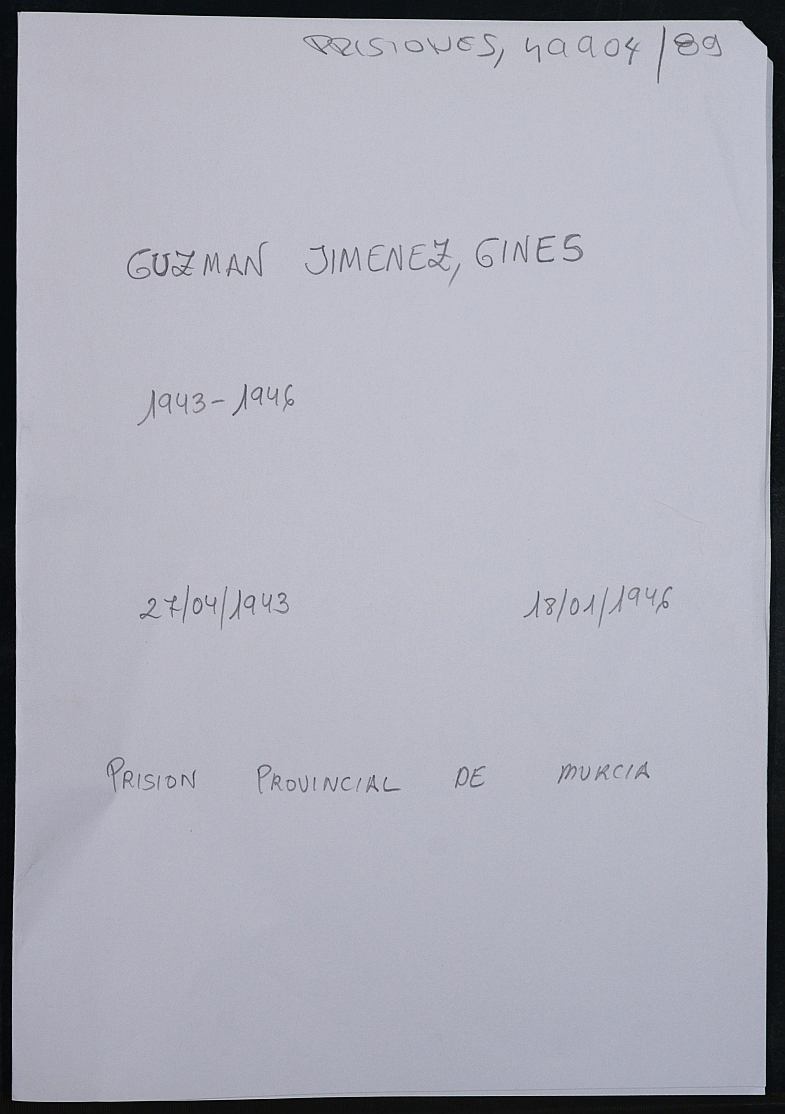 PRISIONES, 49904/89
GUZMAN JIMENEZ, GINES
1943-1946
27/04/1943 18/01/1946
PRISION PROVINCIAL DE MURCIA